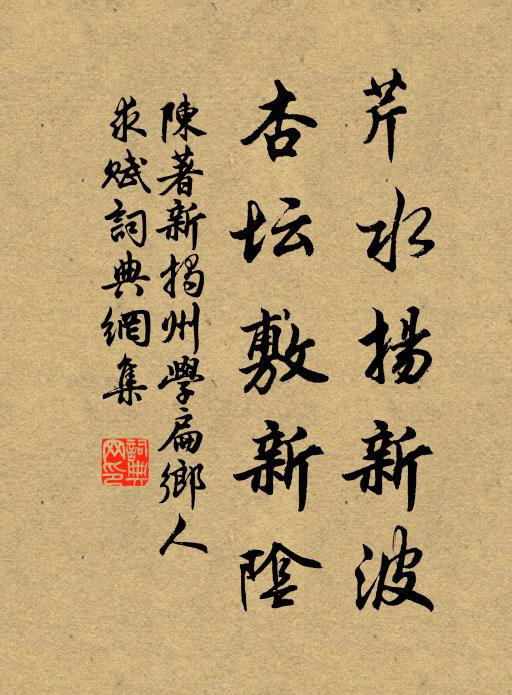 芹水揚新波
杏坛敷新陰
陳著新揭州學扁鄉人
求赋詞典網集
詞典网印